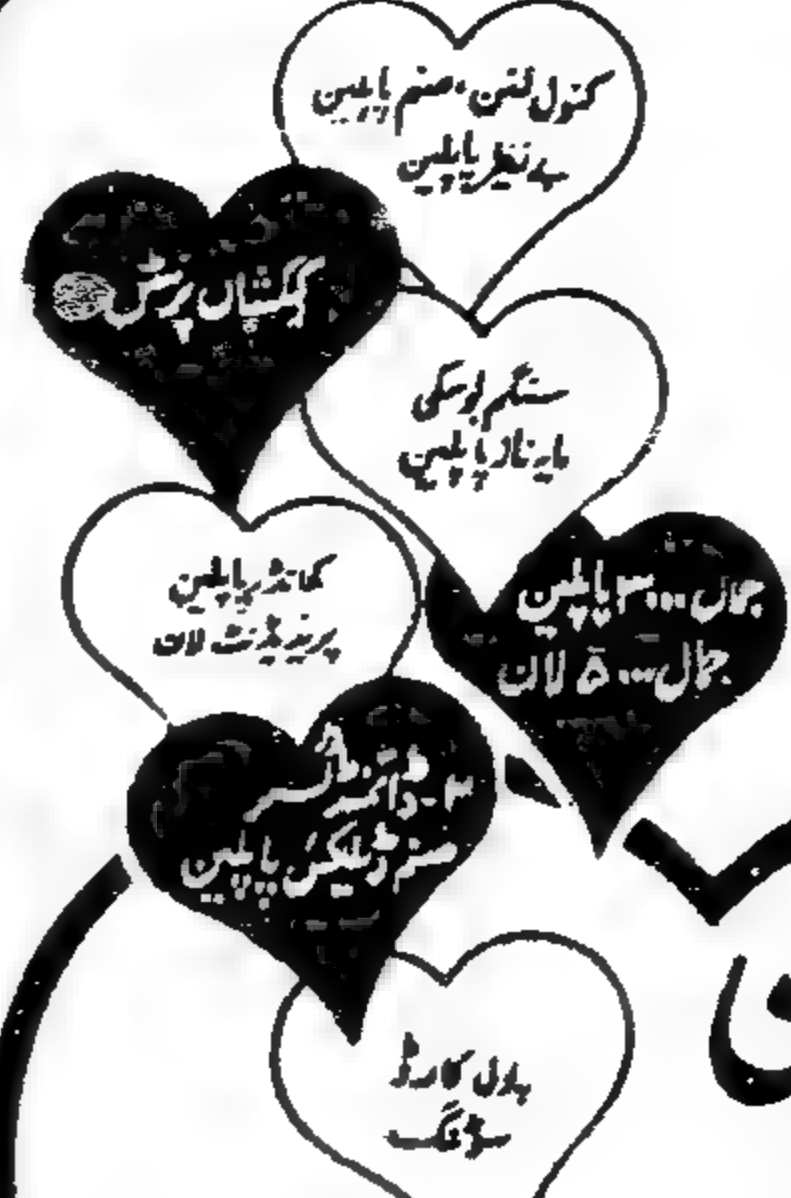 کنول لنن، صنم پاپلین
بے نظیر پاپلین
کہکشاں پرنٹس
سنگم بوسکی
مایہ ناز پاپلین
کمانڈر پاپلین
پریذیڈنٹ لان
جمال ۳۰۰۰ پاپلین
جمال ۵۰۰۰ لان
۳-ڈائمنڈ
صنم ڈیلیکس پاپلین
کارڈ
سوٹنگ